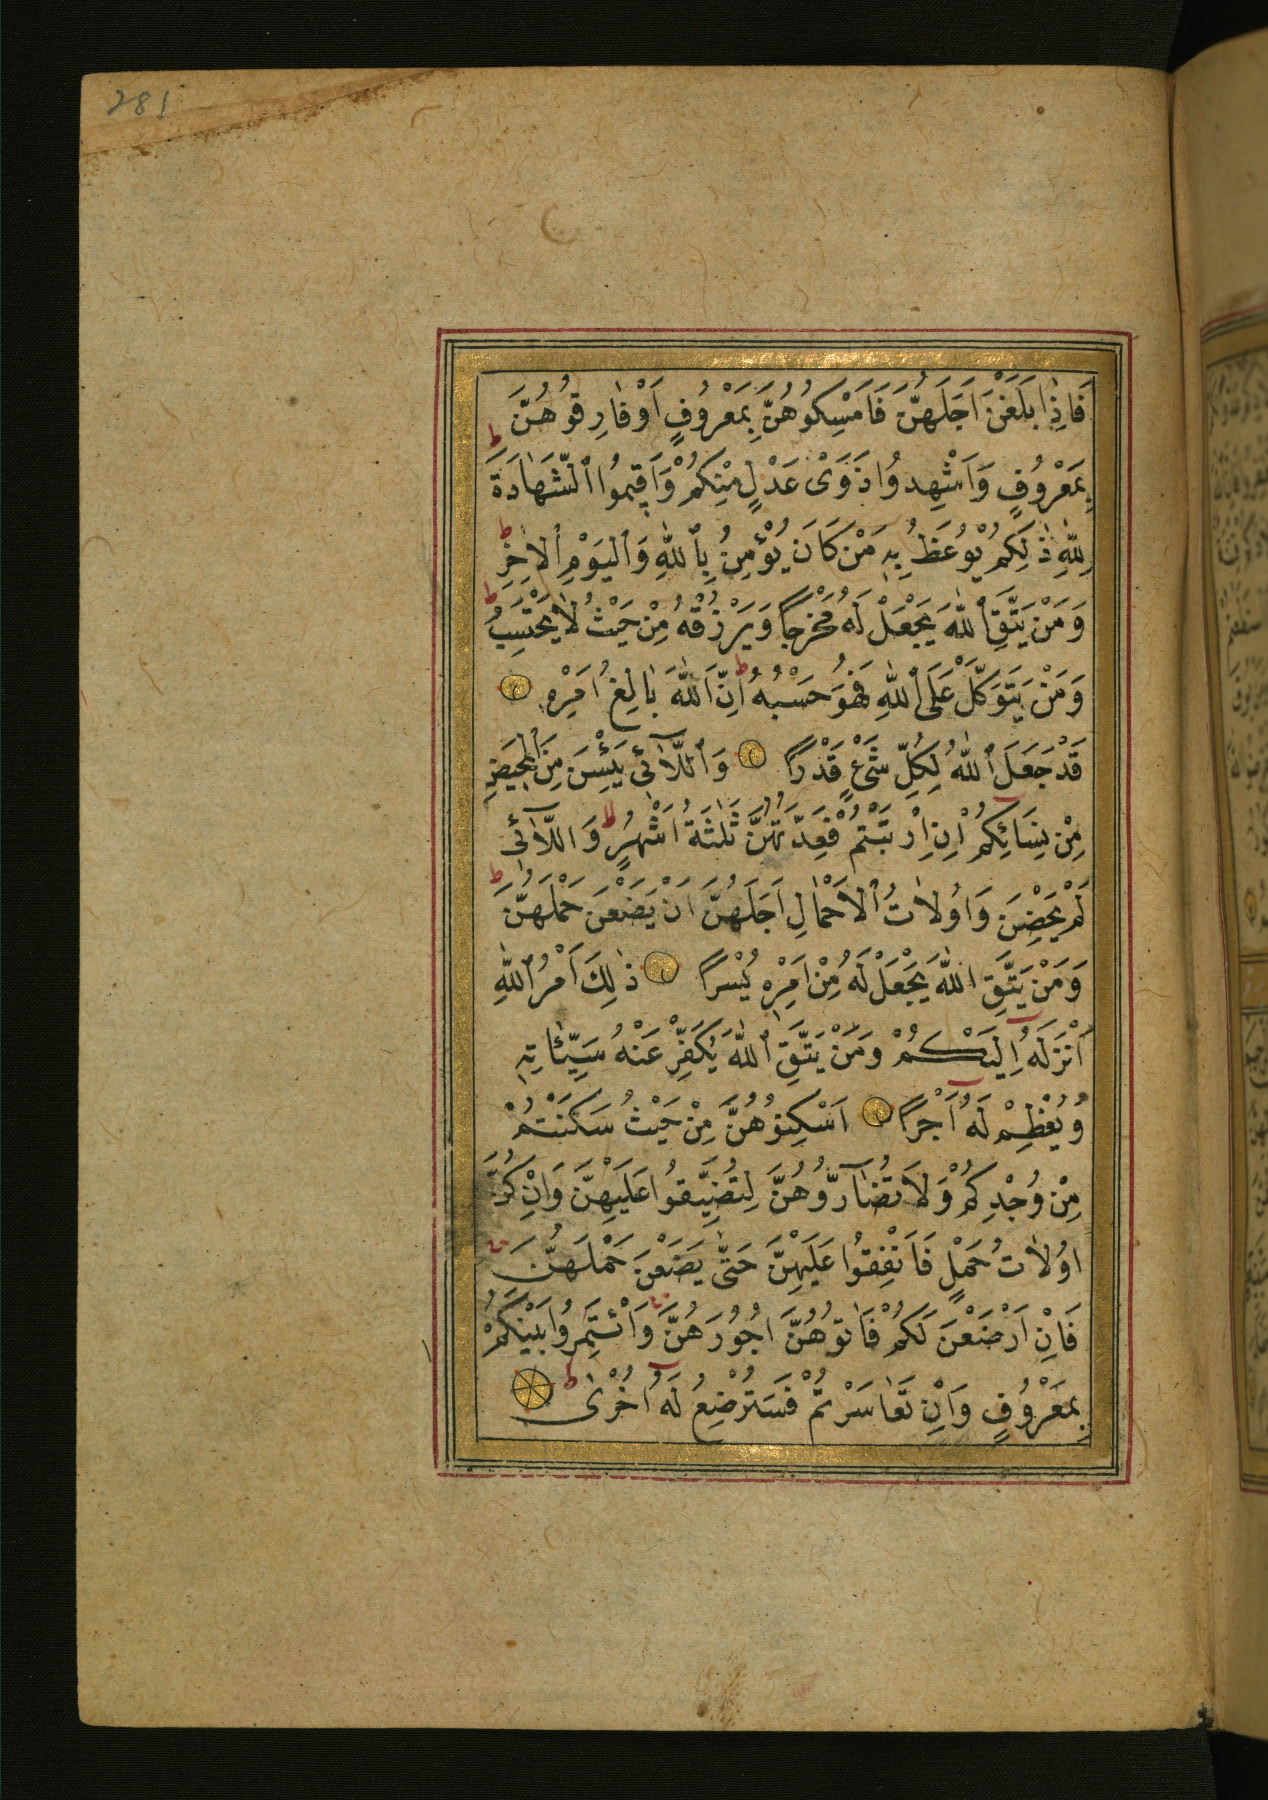 281
فَاِذَا بَلَغْنَ اَجَلَهُنَّ فَاَمْسِكُوهُنَّ بِمَعْرُوفٍ اَوْ فَارِقُوهُنَّ
بِمَعْرُوفٍ وَاَشْهِدُوا ذَوَىْ عَدْلٍ مِنْكُمْ وَاَقِيمُوا الشَّهَادَةَ
لِلّٰهِ ذٰلِكُمْ يُوعَظُ بِهِ مَنْ كَانَ يُؤْمِنُ بِاللّٰهِ وَالْيَوْمِ الْاٰخِرِ
وَمَنْ يَتَّقِ اللّٰهَ يَجْعَلْ لَهُ مَخْرَجًا وَيَرْزُقْهُ مِنْ حَيْثُ لَا يَحْتَسِبُ
وَمَنْ يَتَوَكَّلْ عَلَى اللّٰهِ فَهُوَ حَسْبُهُ اِنَّ اللّٰهَ بَالِغُ اَمْرِهِ
قَدْ جَعَلَ اللّٰهُ لِكُلِّ شَىْءٍ قَدْرًا وَاللَّاٰئِى يَئِسْنَ مِنَ الْمَحِيضِ
مِنْ نِسَائِكُمْ اِنِ ارْتَبْتُمْ فَعِدَّتُهُنَّ ثَلٰثَةُ اَشْهُرٍ وَاللَّاٰئِى
لَمْ يَحِضْنَ وَاُولَاتُ الْاَحْمَالِ اَجَلُهُنَّ اَنْ يَضَعْنَ حَمْلَهُنَّ
وَمَنْ يَتَّقِ اللّٰهَ يَجْعَلْ لَهُ مِنْ اَمْرِهِ يُسْرًا ذٰلِكَ اَمْرُ اللّٰهِ
اَنْزَلَهُ اِلَيْكُمْ وَمَنْ يَتَّقِ اللّٰهَ يُكَفِّرْ عَنْهُ سَيِّئَاتِهِ
وَيُعْظِمْ لَهُ اَجْرًا اَسْكِنُوهُنَّ مِنْ حَيْثُ سَكَنْتُمْ
مِنْ وُجْدِكُمْ وَلَا تُضَآرُّوهُنَّ لِتُضَيِّقُوا عَلَيْهِنَّ وَاِنْ كُنَّ
اُولَاتِ حَمْلٍ فَاَنْفِقُوا عَلَيْهِنَّ حَتّٰى يَضَعْنَ حَمْلَهُنَّ
فَاِنْ اَرْضَعْنَ لَكُمْ فَاٰتُوهُنَّ اُجُورَهُنَّ وَاْتَمِرُوا بَيْنَكُمْ
بِمَعْرُوفٍ وَاِنْ تَعَاسَرْتُمْ فَسَتُرْضِعُ لَهُ اُخْرٰى